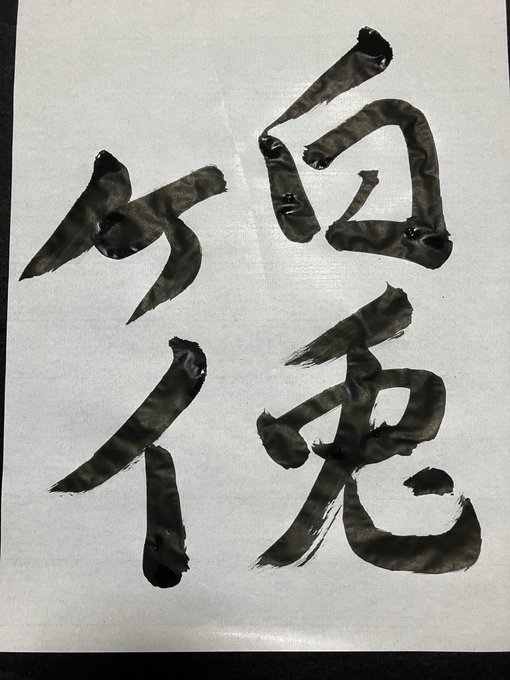 白兎
ケイ